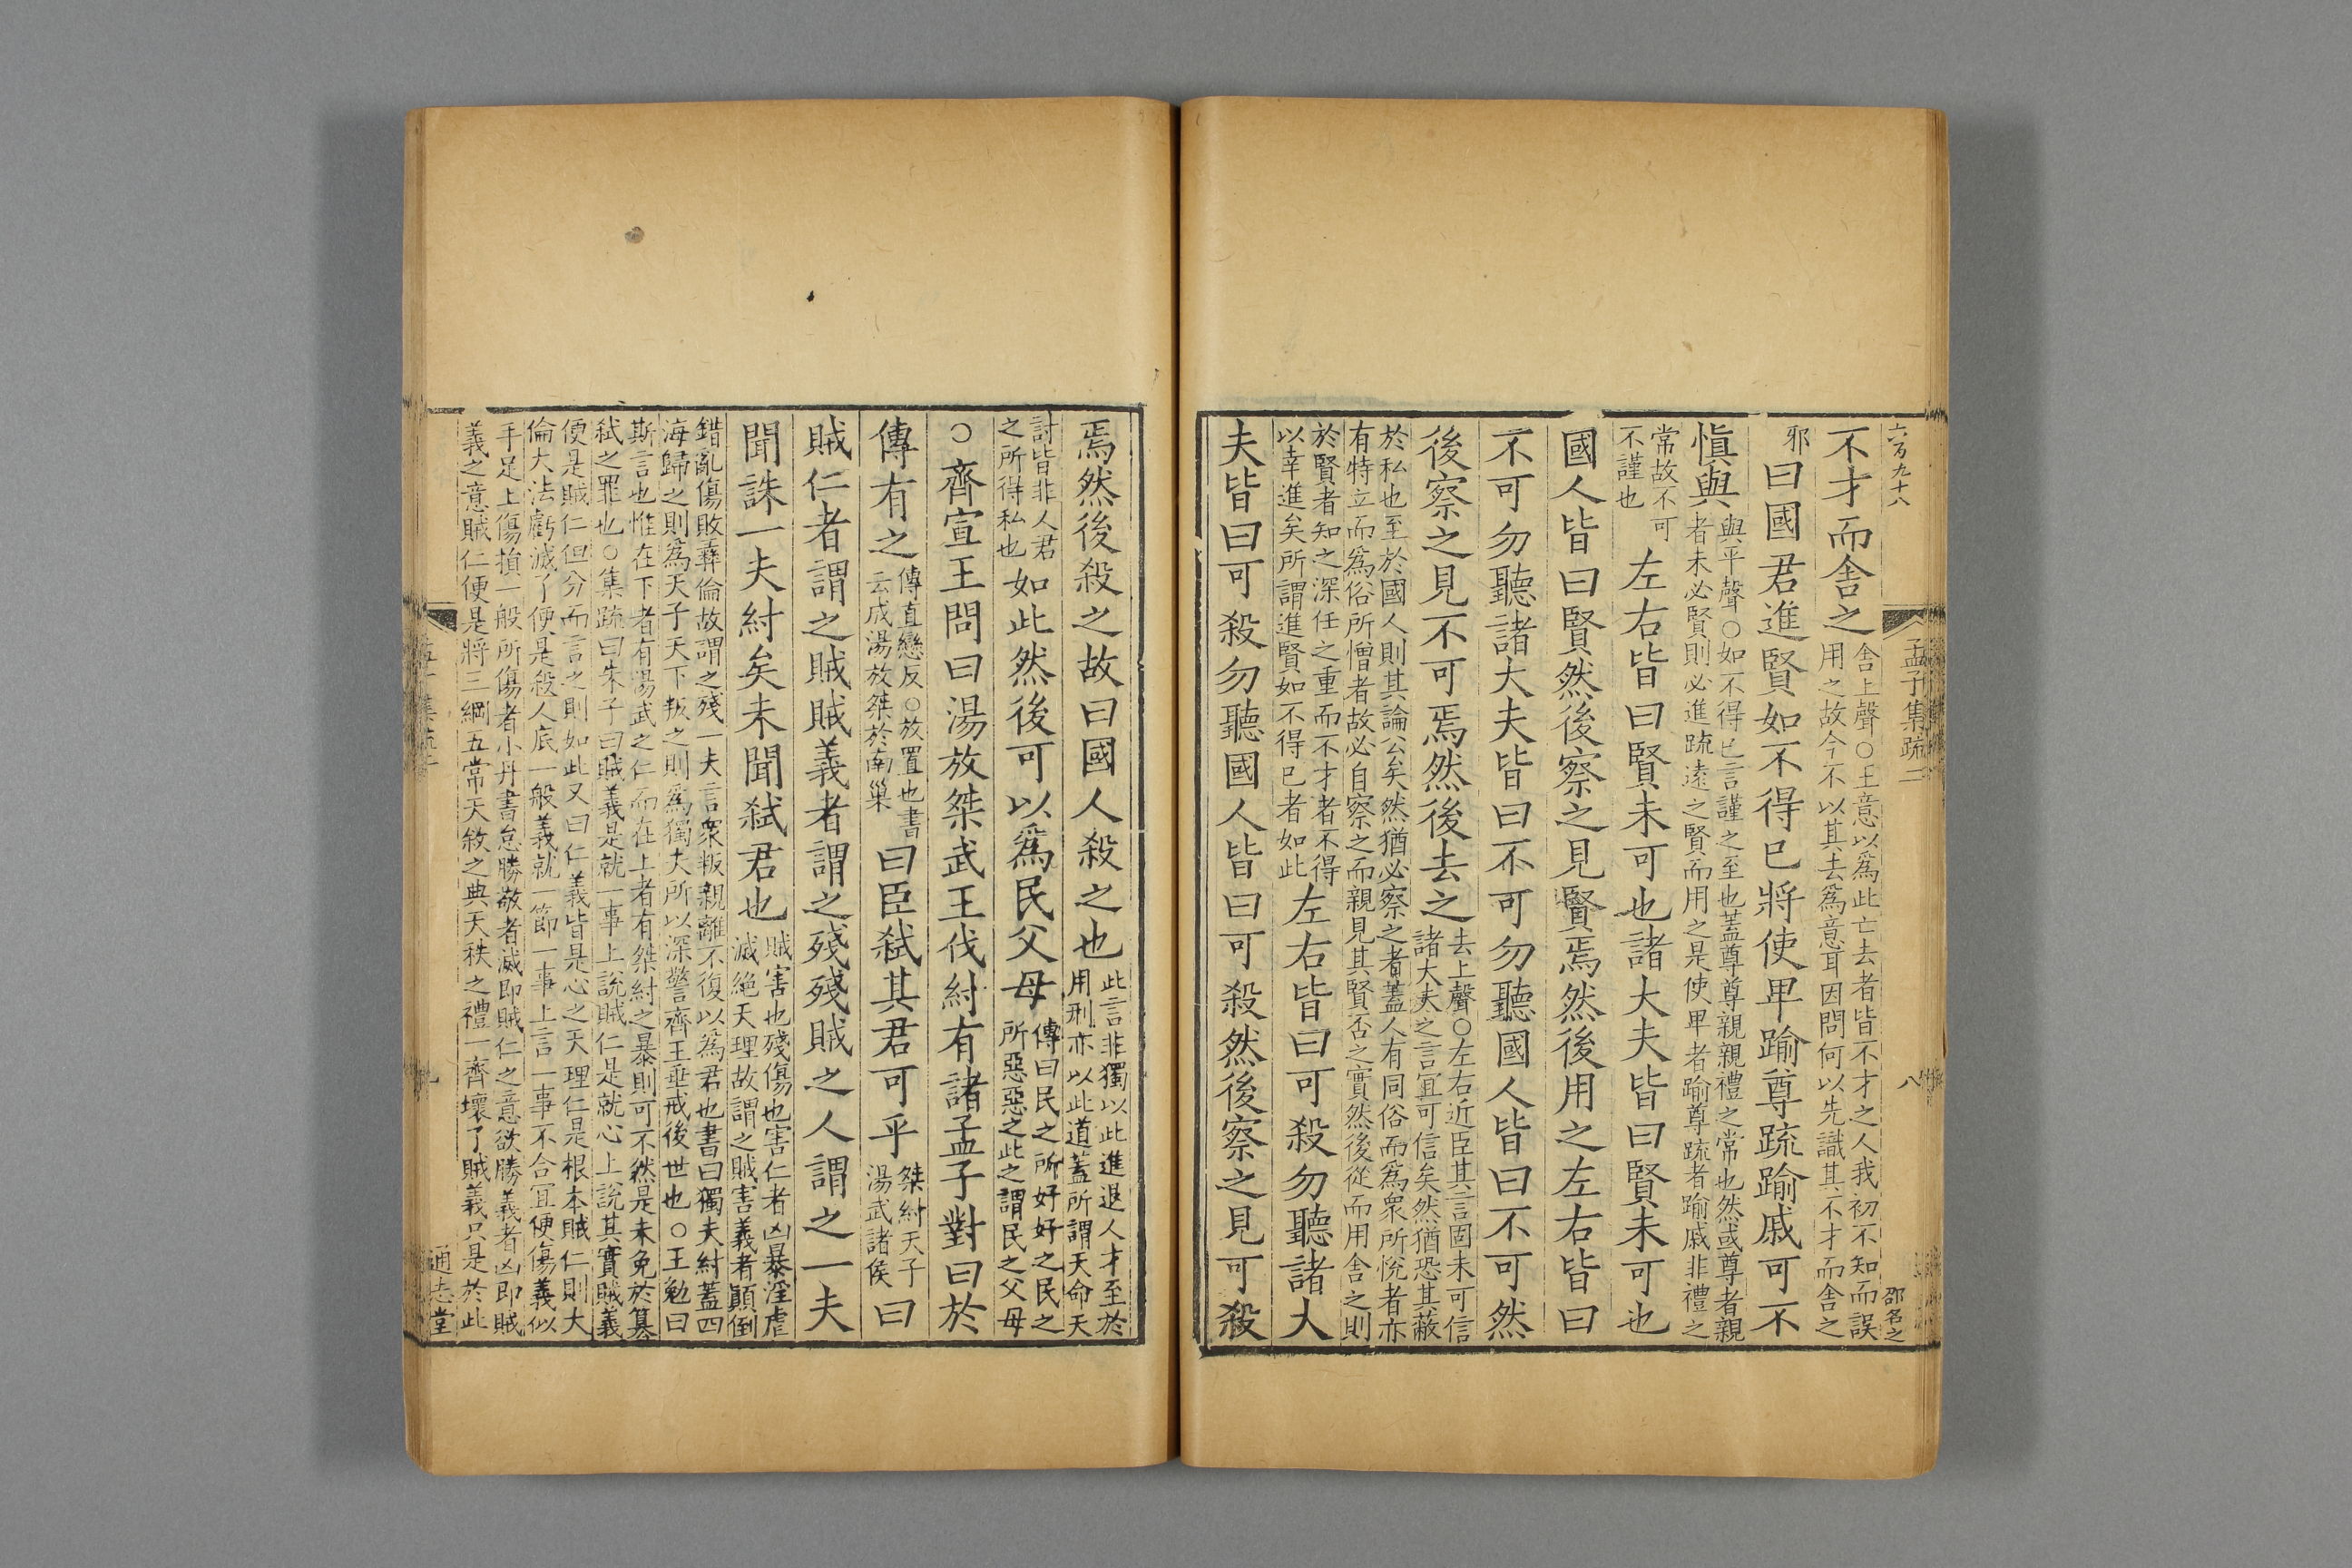 六百九十八
孟子集疏二
八
邵名之
不才而舍之舍上聲○王意以爲此亡去者皆不才之人我初不知而誤
用之故今不以其去爲意耳因問何以先識其不才而舍之
邪曰國君進賢如不得已將使卑踰尊疏踰戚可不
愼與與平聲○如不得已言謹之至也蓋尊尊親親禮之常也然或尊者親
者未必賢則必進疏遠之賢而用之是使卑者踰尊疏者踰戚非禮之
常故不可
不謹也左右皆曰賢未可也諸大夫皆曰賢未可也
國人皆曰賢然後察之見賢焉然後用之左右皆曰
不可勿聽諸大夫皆曰不可勿聽國人皆曰不可然
後察之見不可焉然後去之去上聲○左右近臣其言固未可信
諸大夫之言宜可信矣然猶恐其蔽
於私也至於國人則其論公矣然猶必察之者蓋人有同俗而爲衆所悅者亦
有特立而爲俗所憎者故必自察之而親見其賢否之實然後從而用舍之則
於賢者知之深任之重而不才者不得
以幸進矣所謂進賢如不得已者如此左右皆曰可殺勿聽諸大
夫皆曰可殺勿聽國人皆曰可殺然後察之見可殺
焉然後殺之故曰國人殺之也此言非獨以此進退人才至於
用刑亦以此道蓋所謂天命天
討皆非人君
之所得私也如此然後可以爲民父母傳曰民之所好好之民之
所惡惡之此之謂民之父母
○齊宣王問曰湯放桀武王伐紂有諸孟子對曰於
傳有之傳直戀反○放置也書
云成湯放桀於南巢曰臣弑其君可乎桀紂天子
湯武諸侯曰
賊仁者謂之賊賊義者謂之殘殘賊之人謂之一夫
聞誅一夫紂矣未聞弑君也賊害也殘傷也害仁者凶暴淫虐
滅絕天理故謂之賊害義者顛倒
錯亂傷敗彝倫故謂之殘一夫言衆叛親離不復以爲君也書曰獨夫紂蓋四
海歸之則爲天子天下叛之則爲獨夫所以深警齊王垂戒後世也○王勉曰
斯言也惟在下者有湯武之仁而在上者有桀紂之暴則可不然是未免於簒
弑之罪也○集疏曰朱子曰賊義是就一事上說賊仁是就心上說其實賊義
便是賊仁但分而言之則如此又曰仁義皆是心之天理仁是根本賊仁則大
倫大法虧滅了便是殺人底一般義就一節一事上言一事不合宜便傷義似
手足上傷損一般所傷者小丹書怠勝敬者滅即賊仁之意欲勝義者凶即賊
義之意賊仁便是將三綱五常天敘之典天秩之禮一齊壞了賊義只是於此
通志堂